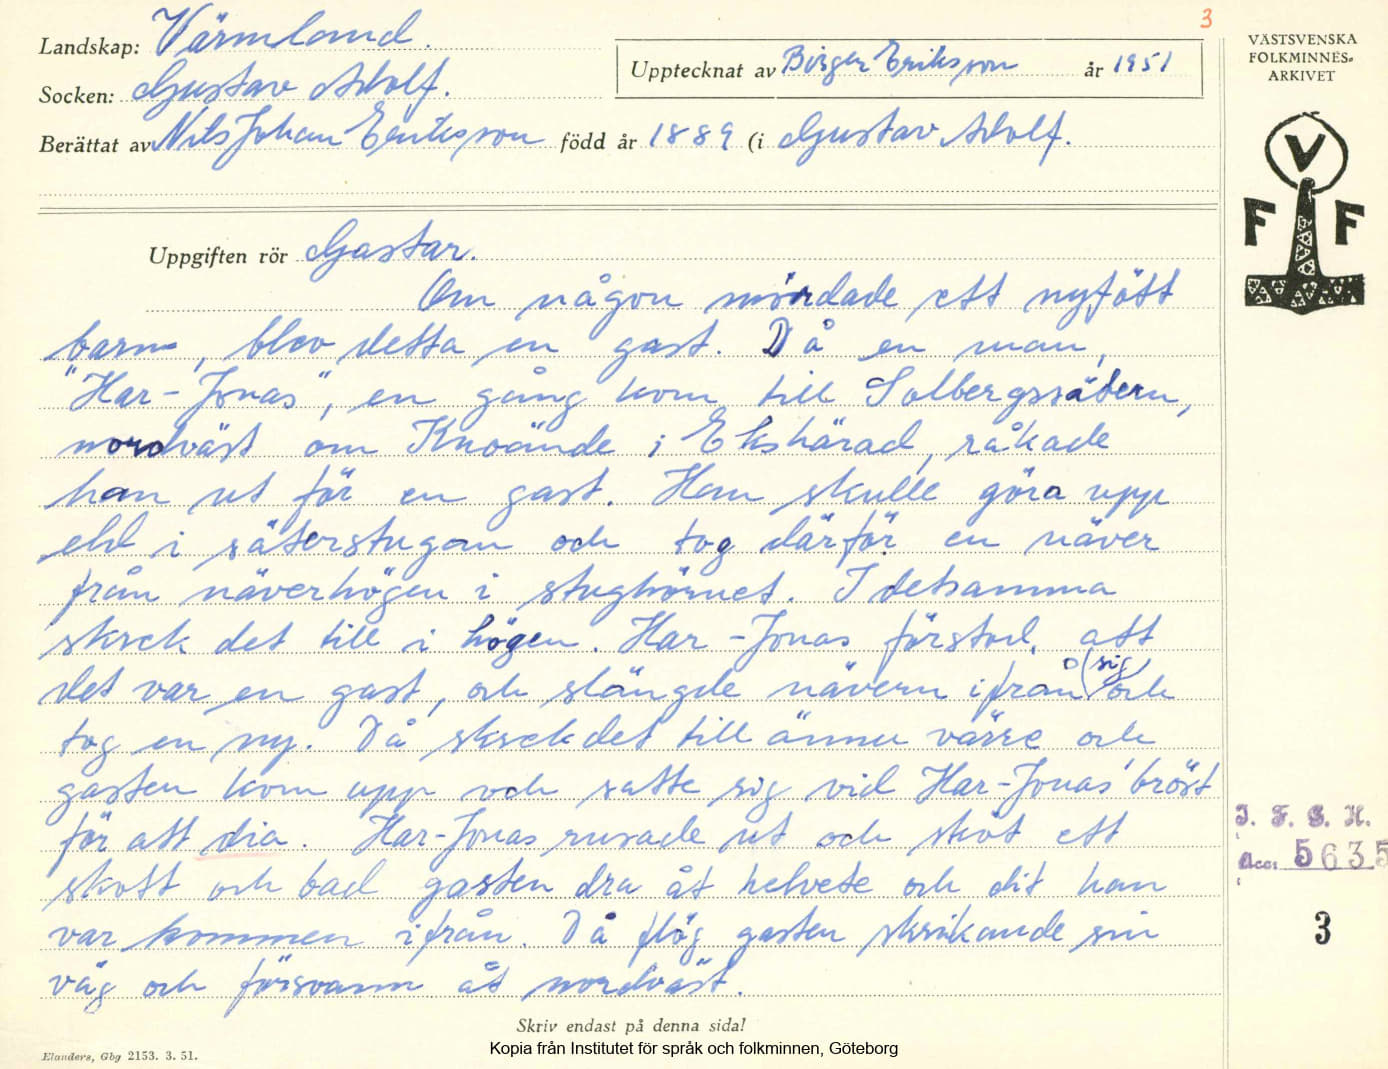 3
Landskap: Värmland.
Upptecknat av Birger Eriksson år 1951
VÄSTSVENSKA
FOLKMINNES-
ARKIVET
Socken: Gustav Adolf.
Berättat av Nils Johan Eriksson född år 1889 (i Gustav Adolf.
V
F F
Uppgiften rör Gastar.
Om någon mördade ett nyfött
barn, blev detta en gast. Då en man,
"Har-Jonas", en gång kom till Solbergssätern,
nordväst om Knoände i Ekshärad, råkade
han ut för en gast. Han skulle göra upp
eld i säterstugan och tog därför en näver
från näverhögen i stughörnet. I detsamma
skrek det till i högen. Har-Jonas förstod, att
det var en gast, och slängde nävern ifrån (sig) och
tog en ny. Då skrek det till ännu värre och
gasten kom upp och satte sig vid Har-Jonas' bröst
för att dia. Har-Jonas rusade ut och sköt ett
skott och bad gasten dra åt helvete och dit han
var kommen ifrån. Då flög gasten skrikande sin
väg och försvann åt nordväst.
I. F. G. H.
Acc: 5635
3
Skriv endast på denna sida!
Elanders, Gbg 2153. 3. 51.
Kopia från Institutet för språk och folkminnen, Göteborg